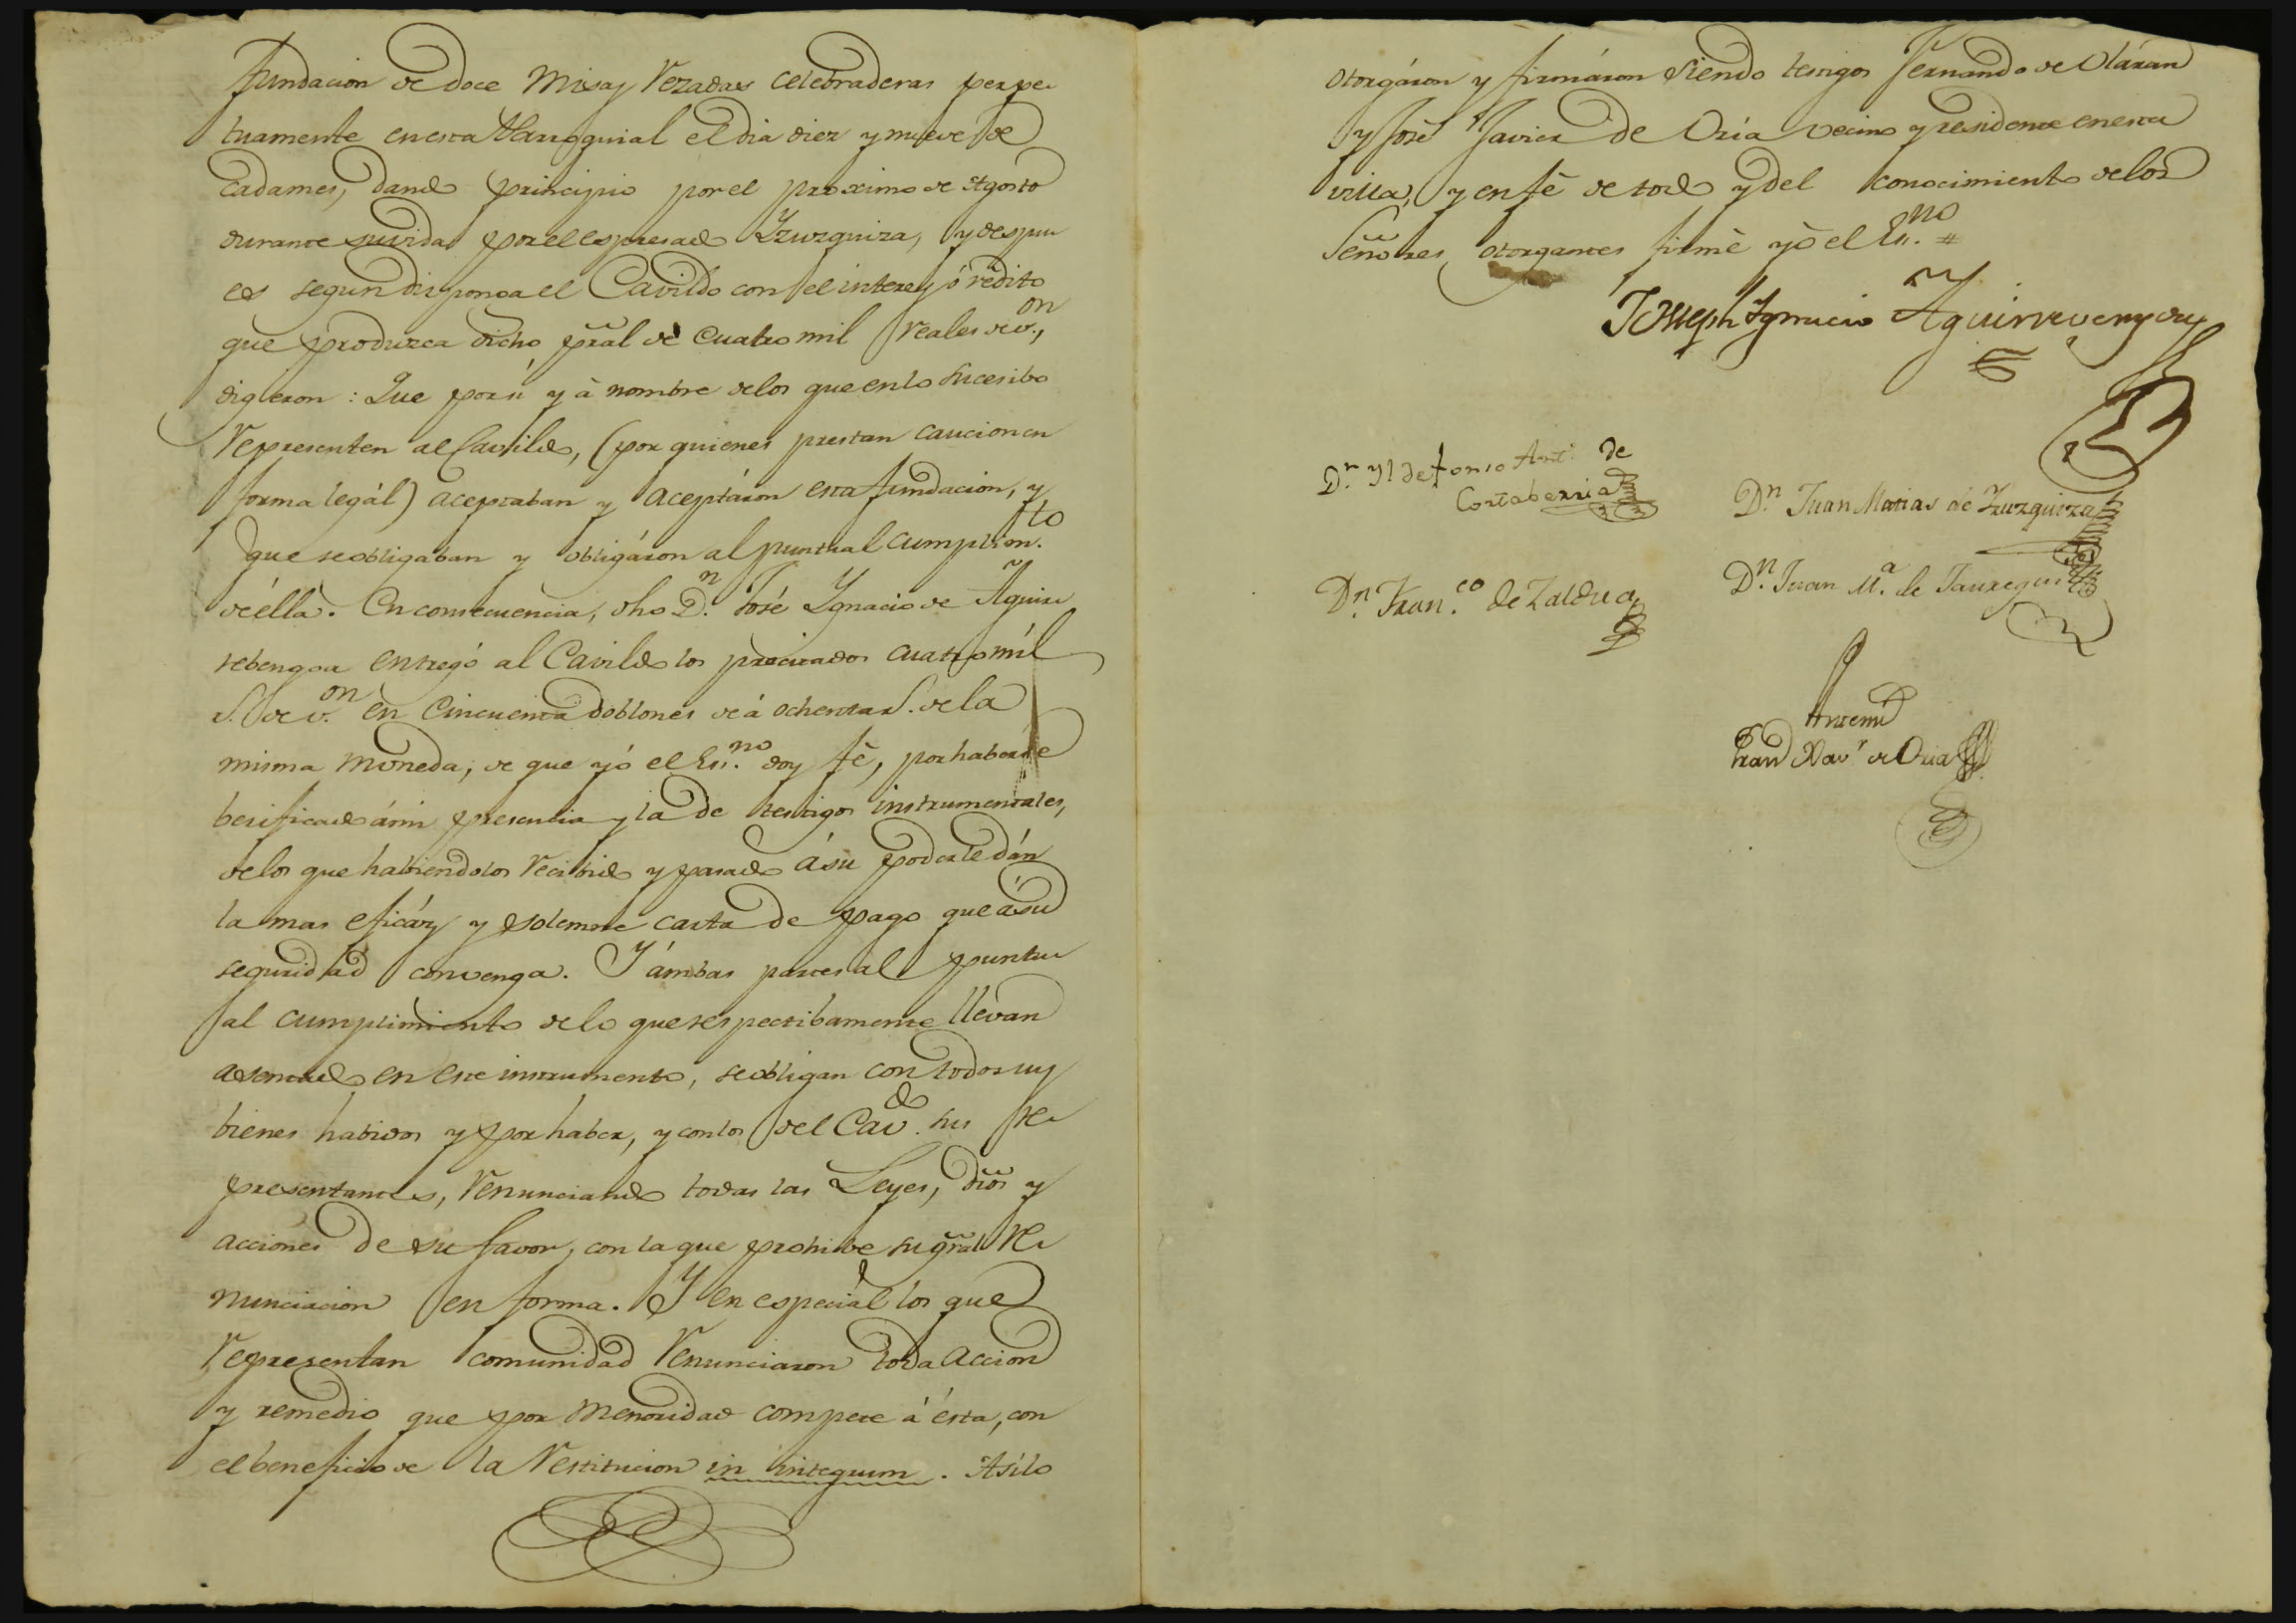 fundacion de doce Misas Rezadas celebraderas perpe-
tuamente en esta Parroquial el dia diez y nueve de
cada mes, dando principio por el proximo de Agosto
durante su vida por el espresado Yzuzquiza, y despu-
es segun disponga el Cavildo con el interes, ó rédito
que produzca dicho pral de cuatro mil reales de v.on,
digeron: Que por si y à nombre de los que en lo sucesibo
Representen al Cavildo, (por quienes prestan caucion en
forma legál) aceptaban y aceptáron esta fundacion, y
que se obligaban y obligáron al puntual cumplim.to
de élla. En consecuencia, dho D.n José Ygnacio de Aguir-
rebengoa entregó al Cavildo los precitados cuatro míl
r.s de v.on en Cincuenta doblones de á ochenta r.s de la
misma moneda, de que yó el Es.no doy fé, por haberse
berificado á mi presencia y la de testigos instrumentales,
de los que habiendolos Recibido y pasado á su poder le dán
la mas eficáz y solemne carta de pago que á su
seguridad convenga. Y ámbas partes al puntu-
al cumplimiento de lo que respectibamente llevan
asentado en este instrumento, se obligan con todos sus
bienes habidos y por haber, y con los del Cav.do sus Re-
presentantes, Renunciando todas las Leyes, dros y
acciones de su favor, con la que prohibe su gral Re-
nunciacion en forma. Y en especiál los que
Representan comunidad Renunciaron toda accion
y remedio que por menoridad compete á ésta, con
el beneficio de la Restitucion in integrum. Asilo
otorgáron y firmáron siendo testigos Fernando de Oláran
y José Javier de Oria vecino y residente en esta
villa, y en fé de todo y del conocimiento de los
Señores otorgantes firmé yó el Es.no #
Joseph Ygnacio Aguirrevengoa
D.n Yldefonso Ant.o de
Cortaberria
D.n Juan Matias de Yzuzquiza
D.n Fran.co de Zaldua
D.n Juan M.a de Jauregui
Antemi
Fran.co Xav.r de Oria